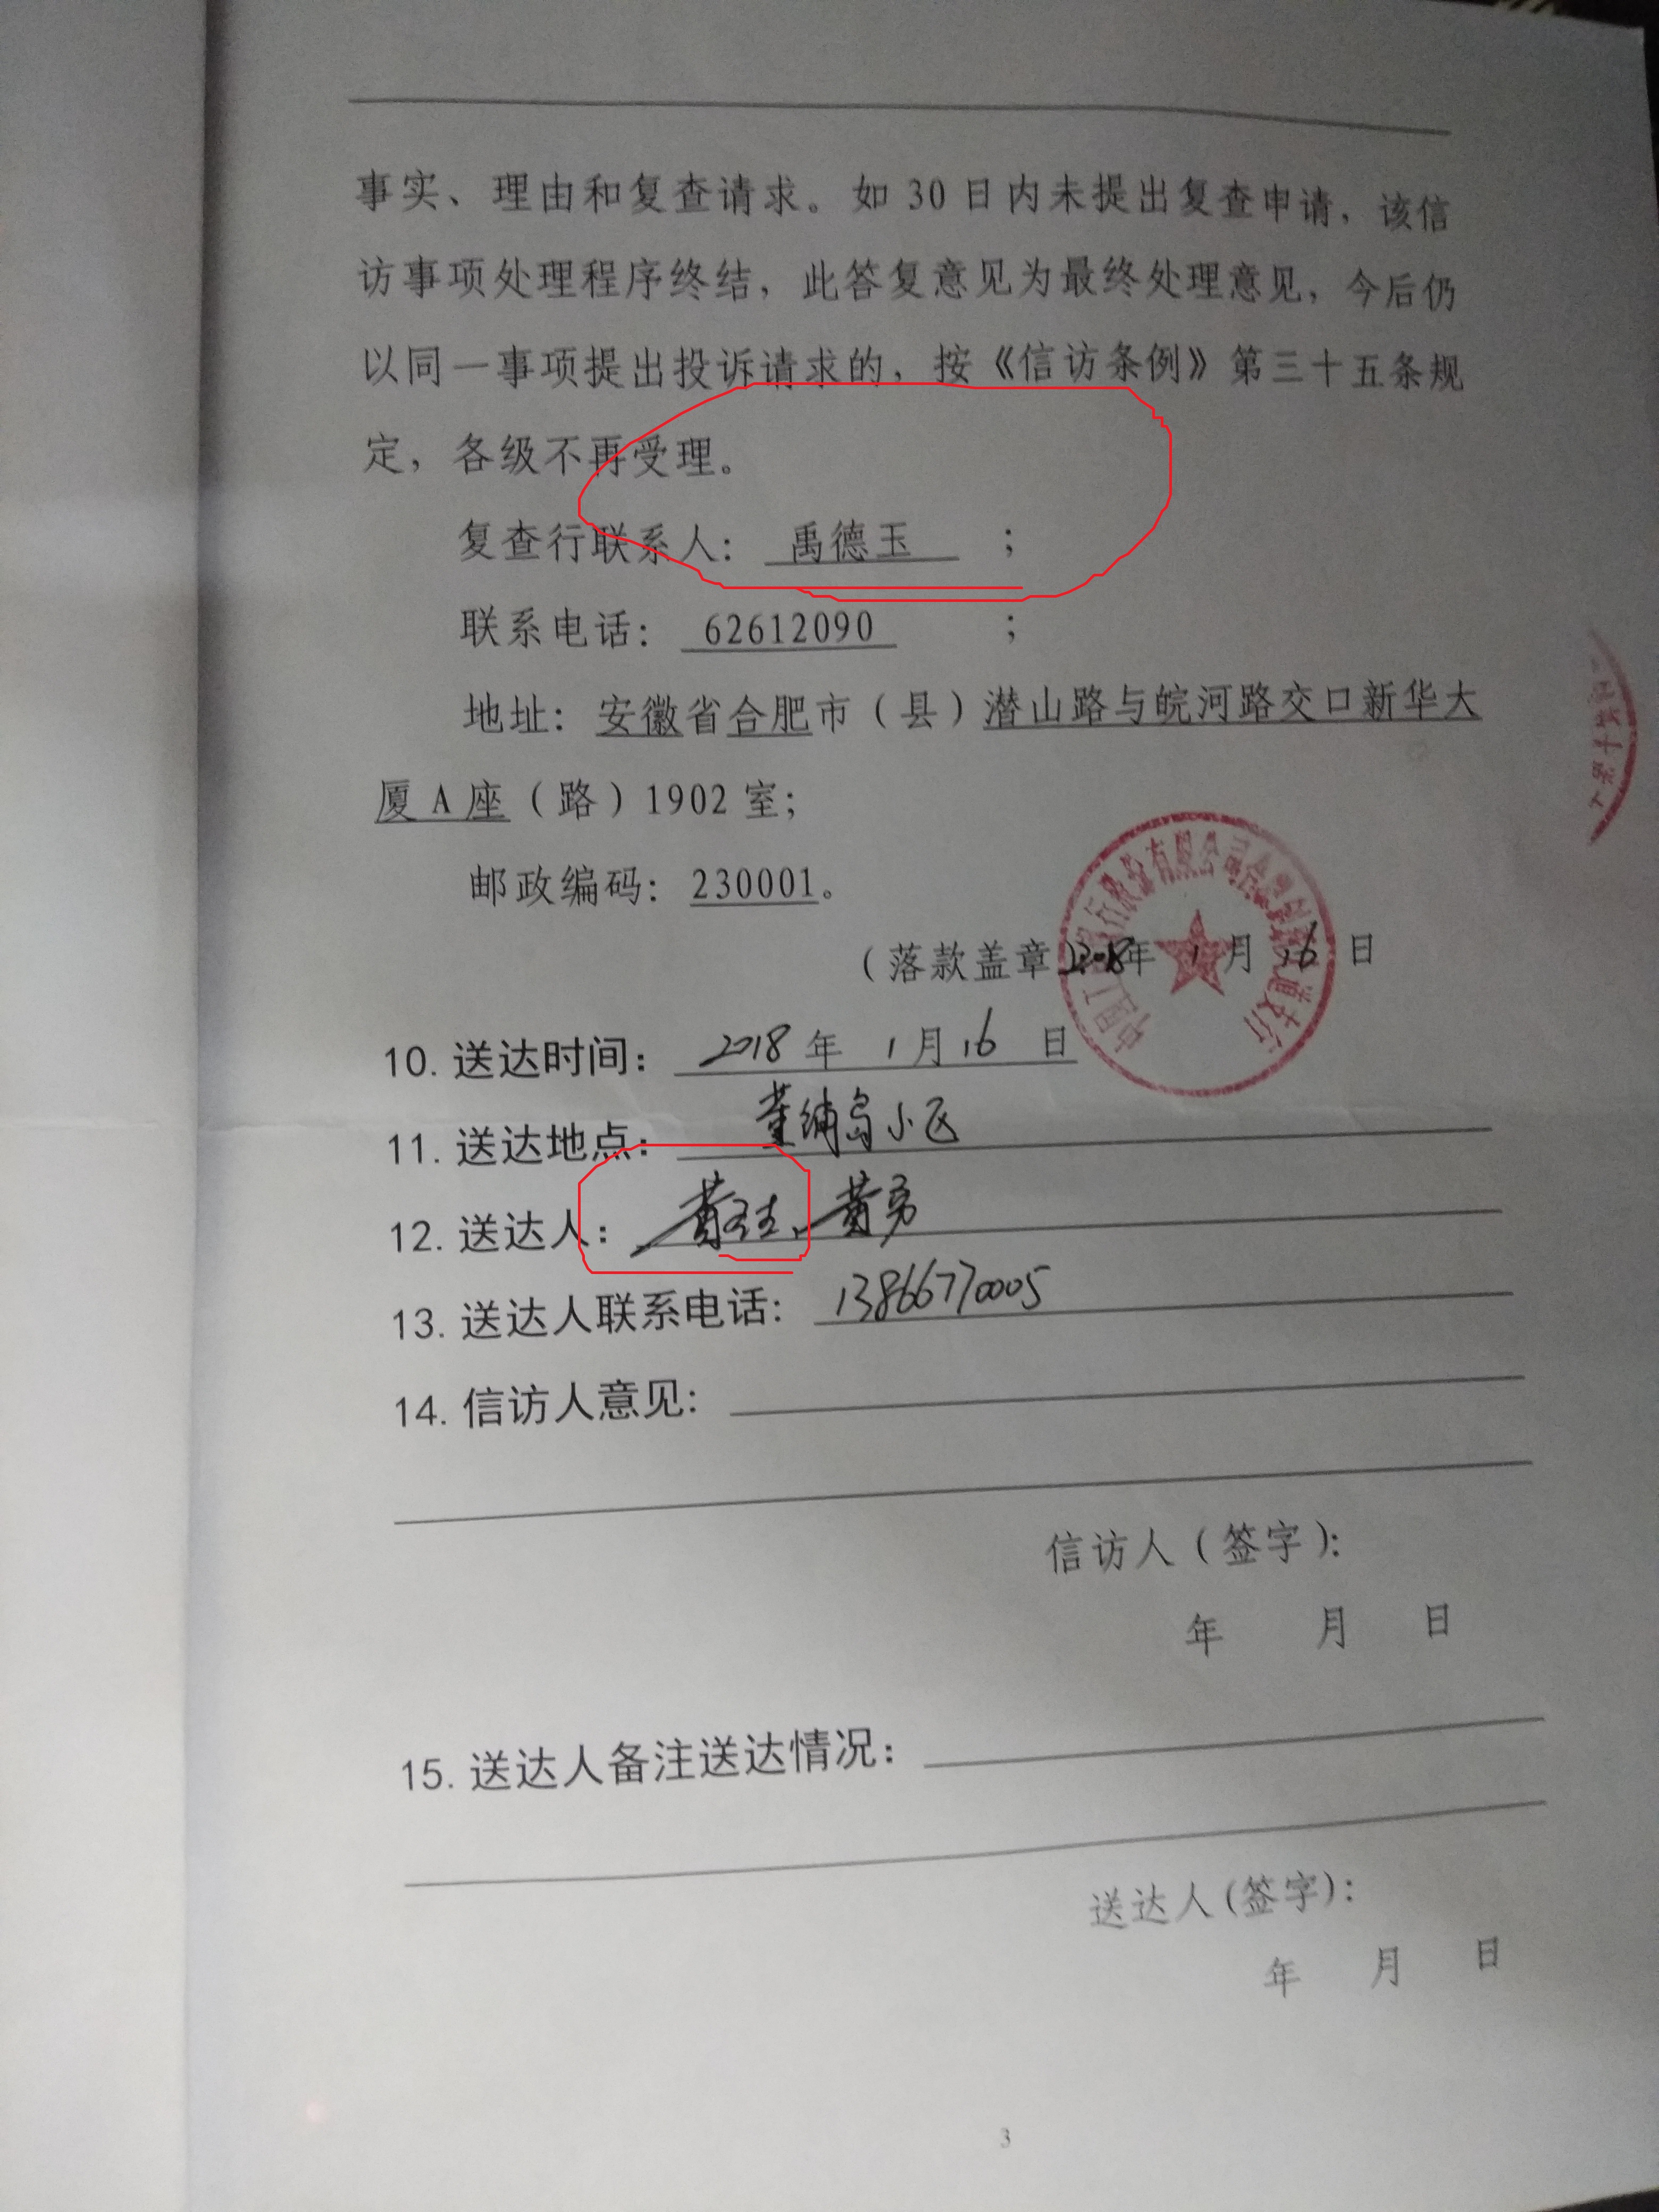 事实、理由和复查请求。如 30 日内未提出复查申请，该信
访事项处理程序终结，此答复意见为最终处理意见，今后仍
以同一事项提出投诉请求的，按《信访条例》第三十五条规
定，各级不再受理。
复查行联系人： 禹德玉 ；
联系电话： 62612090 ；
地址：安徽省合肥市（县）潜山路与皖河路交口新华大
厦 A 座（路）1902 室；
邮政编码：230001。
（落款盖章）2018年 1 月 16 日
10. 送达时间： 2018 年 1 月 16 日
11. 送达地点： 董铺岛小区
12. 送达人： 黄勇
13. 送达人联系电话： 13866770005
14. 信访人意见：
信访人（签字）：
年 月 日
15. 送达人备注送达情况：
送达人(签字)：
年 月 日
3